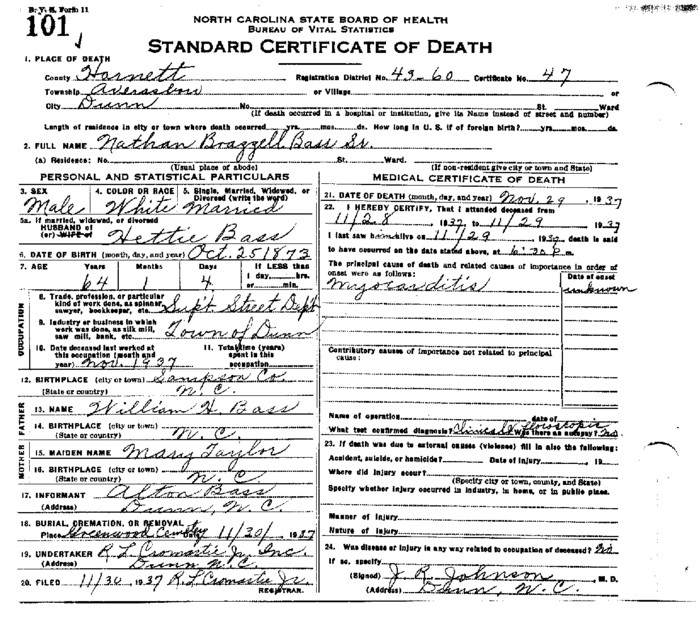 B. V. S. Form 11
101
NORTH CAROLINA STATE BOARD OF HEALTH
BUREAU OF VITAL STATISTICS
STANDARD CERTIFICATE OF DEATH
1. PLACE OF DEATH
County Harnett Registration District No. 43-60 Certificate No. 47
Township Averasboro or Village or
City Dunn No. St. Ward
(If death occurred in a hospital or institution, give its Name instead of street and number)
Length of residence in city or town where death occurred yrs. mos. ds. How long in U. S. if of foreign birth? yrs. mos. ds.
2. FULL NAME Nathan Brazzell Bass Sr.
(a) Residence: No. St. Ward.
(Usual place of above) (If non-resident give city or town and State)
PERSONAL AND STATISTICAL PARTICULARS
3. SEX 4. COLOR OR RACE 5. Single, Married, Widowed, or
Divorced (write the word)
Male White Married
5a. If married, widowed, or divorced
HUSBAND of
(or) WIFE of Hettie Bass
6. DATE OF BIRTH (month, day, and year) Oct. 25 1873
7. AGE Years Months Days If LESS than
1 day, hrs.
or min.
64 1 4
OCCUPATION
8. Trade, profession, or particular
kind of work done, as spinner,
sawyer, bookkeeper, etc. Supt Street Dept
9. Industry or business in which
work was done, as silk mill,
saw mill, bank, etc. Town of Dunn
10. Date deceased last worked at
this occupation (month and
year) Nov. 1937
11. Total time (years)
spent in this
occupation
12. BIRTHPLACE (city or town) Sampson Co.
(State or country) N. C.
FATHER
13. NAME William H. Bass
14. BIRTHPLACE (city or town)
(State or country) N. C.
MOTHER
15. MAIDEN NAME Mary Taylor
16. BIRTHPLACE (city or town)
(State or country) N. C.
17. INFORMANT Alton Bass
(Address) Dunn, N. C.
18. BURIAL, CREMATION, OR REMOVAL
Place Greenwood Cemetery 11/30/ 1937
19. UNDERTAKER R L Cromartie Jr. Inc
(Address) Dunn N. C.
20. FILED 11/30 1937 R. L. Cromartie Jr.
REGISTRAR.
MEDICAL CERTIFICATE OF DEATH
21. DATE OF DEATH (month, day, and year) Nov. 29, 1937
22. I HEREBY CERTIFY, That I attended deceased from
11/28 1937 to 11/29 1937
I last saw him alive on 11/29 193 death is said
to have occurred on the date stated above, at 6:30 P m.
The principal cause of death and related causes of importance in order of
onset were as follows: Date of onset
Myocarditis unknown
Contributory causes of importance not related to principal
cause:
Name of operation date of
What test confirmed diagnosis? Clinical Was there an autopsy? No
23. If death was due to external causes (violence) fill in also the following:
Accident, suicide, or homicide? Date of injury 19
Where did injury occur?
(Specify city or town, county, and State)
Specify whether injury occurred in industry, in home, or in public place.
Manner of injury
Nature of injury
24. Was disease or injury in any way related to occupation of deceased? No
If so, specify
(Signed) J. R. Johnson M. D.
(Address) Dunn, N. C.